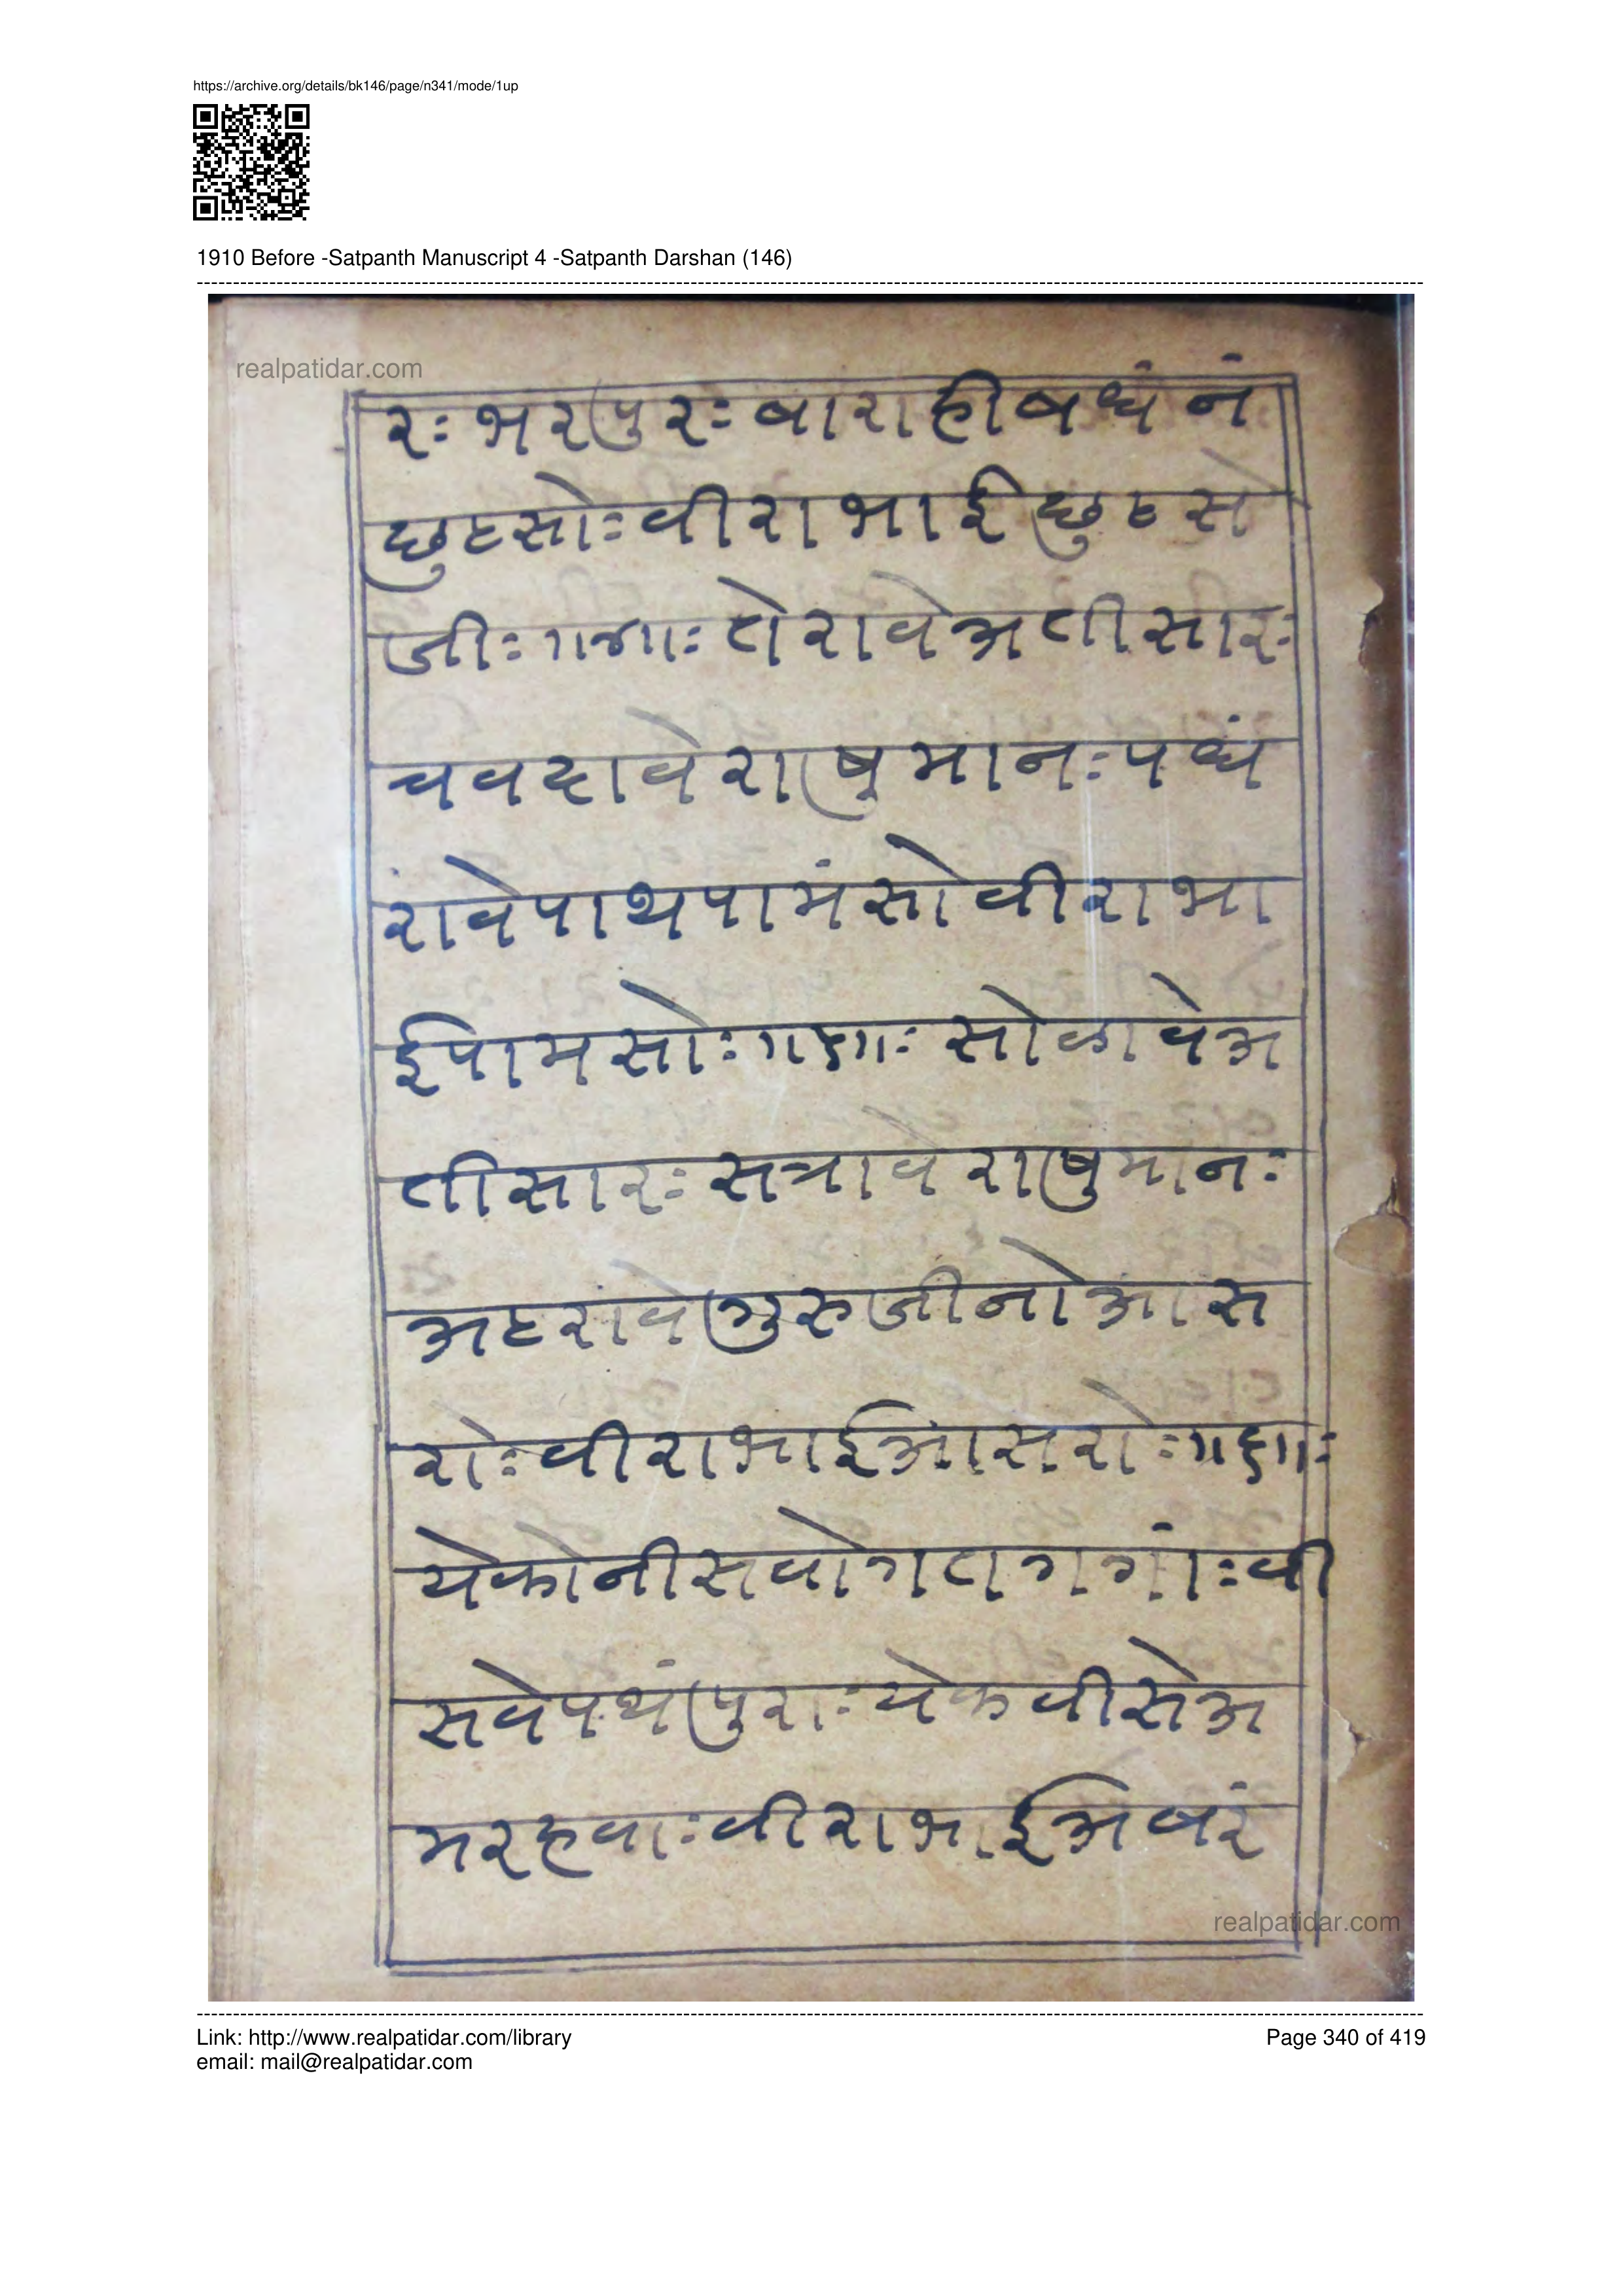 https://archive.org/details/bk146/page/n341/mode/1up
1910 Before -Satpanth Manuscript 4 -Satpanth Darshan (146)
realpatidar.com
रः भरपुरः बाराही बधंनं
छुटसोः वीराभाई छुटसे
जीः ॥४॥ः तेरावे अतीसारः
चवदावे राषुमानः पधं
रांवे पाथपामंसो वीराभा
ईपामसोः ॥५॥ः सोळावे अ
तीसारः सत्रावे राषुमानः
अहरांवे गुरुजीनो आस
रोः वीराभाई आसरोः ॥६॥ः
येकोनीसवो गतागगांः वी
सवे पथंपुराः येकवीसे अ
मरहवाः वीराभाई अबरं
realpatidar.com
Link: http://www.realpatidar.com/library
Page 340 of 419
email: mail@realpatidar.com